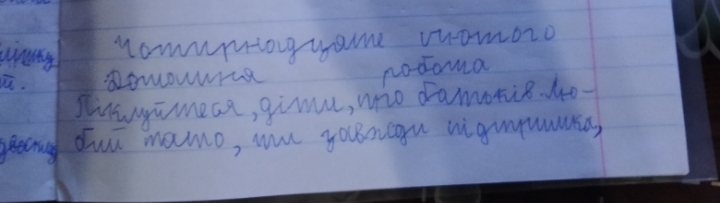 Чотирнадцяте лютого
Домашня робота
Піклуйтеся, діти, про батьків. Лю-
бий тато, ти завжди підтримка,